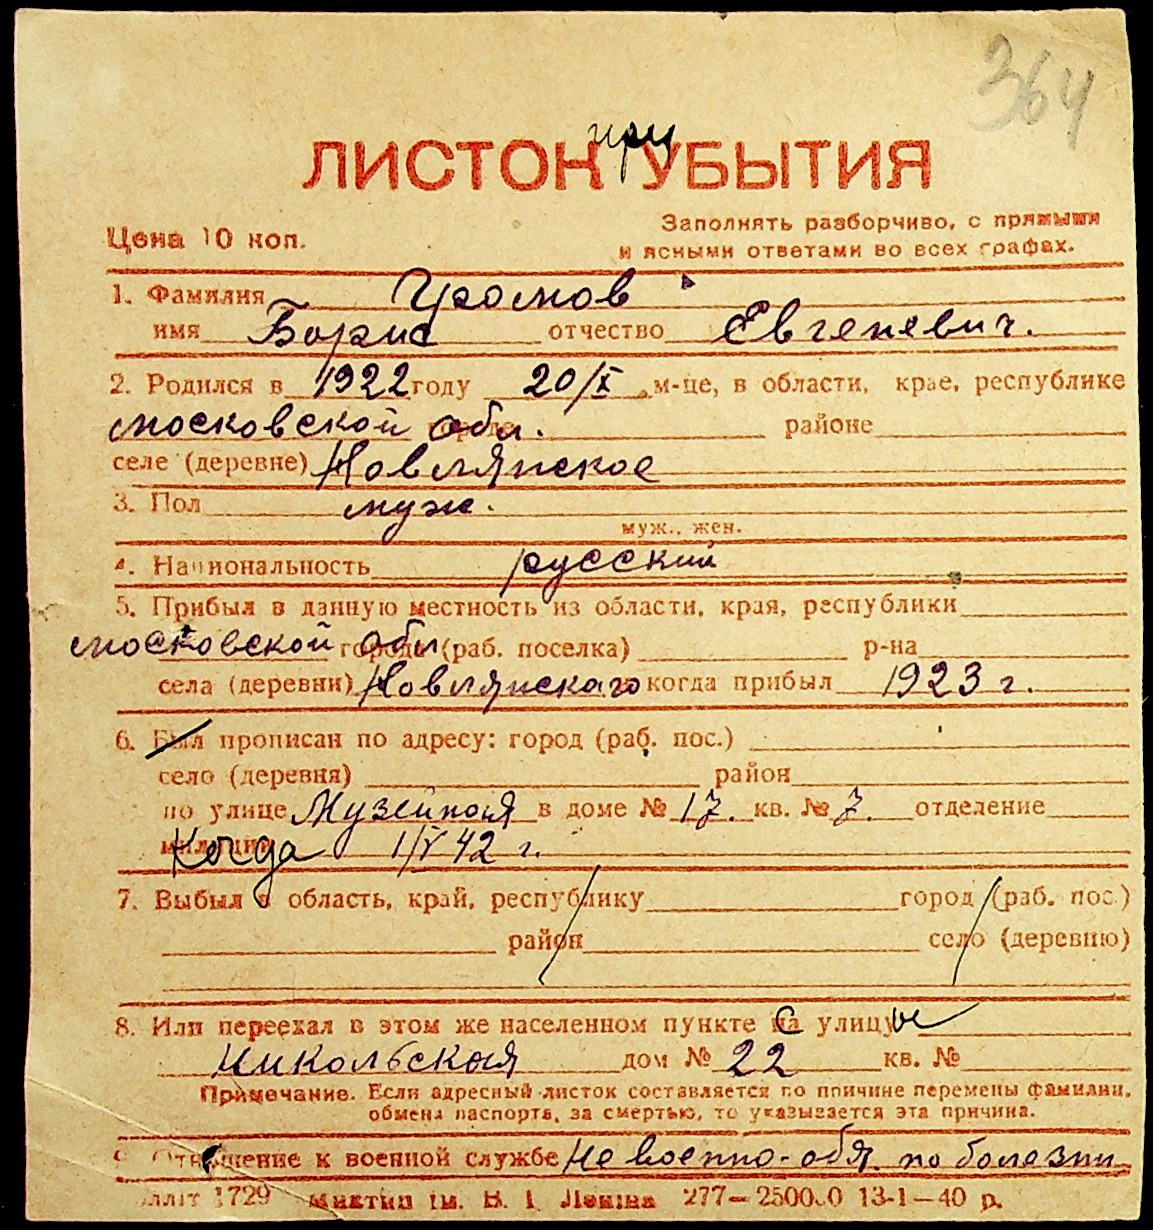 364
при
ЛИСТОК УБЫТИЯ
Цена 10 коп.
Заполнять разборчиво, с прямыми
и ясными ответами во всех графах.
1. Фамилия Громов
имя Борис отчество Евгеневич.
2. Родился в 1922 году 20/X м-це, в области, крае, республике
московской обл. районе
селе (деревне) Новлянское
3. Пол муж.
муж., жен.
4. Национальность русский
5. Прибыл в данную местность из области, края, республики
московской обл города (раб. поселка) р-на
села (деревни) Новлянскаго когда прибыл 1923 г.
6. Был прописан по адресу: город (раб. пос.)
село (деревня) район
по улице Музейная в доме № 17. кв. № 7. отделение
милиции Когда 1/V 42 г.
7. Выбыл в область, край, республику город (раб. пос.)
район село (деревню)
8. Или переехал в этом же населенном пункте с улицы
Никольская дом № 22 кв. №
Примечание. Если адресный листок составляется по причине перемены фамилии,
обмена паспорта, за смертью, то указывается эта причина.
9. Отношение к военной службе не военно-обя. по болезни
1729 им. В. И. Ленина 277—250000 13-1—40 р.